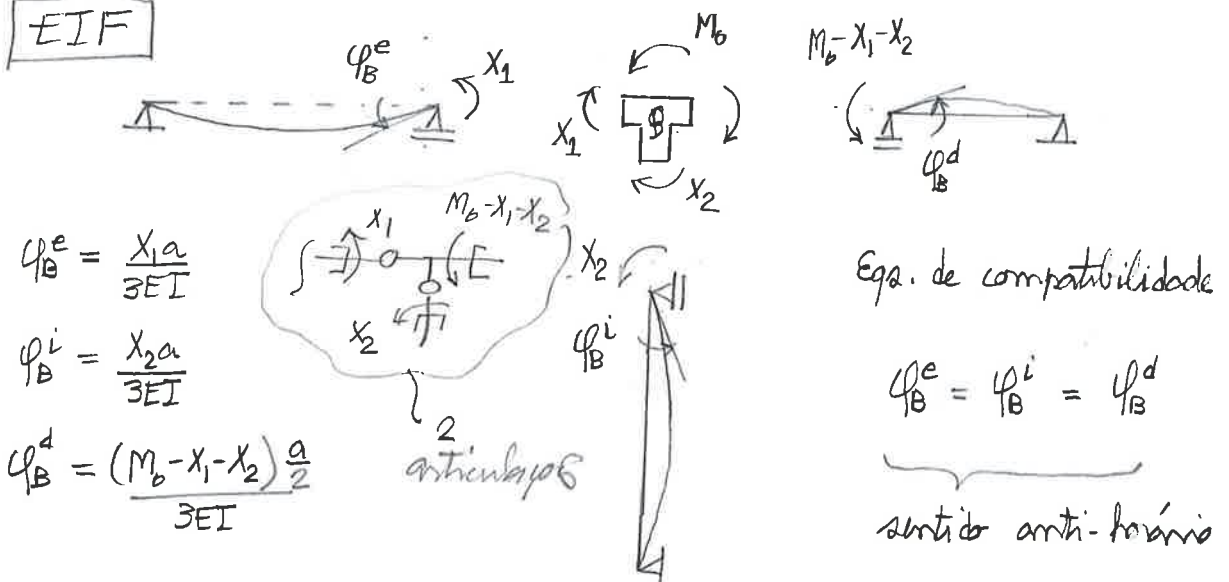 EIF
φ_B^e
X₁
M₀
X₁
B
X₂
M₀-X₁-X₂
φ_B^d
φ_B^e = X₁a / 3EI
φ_B^i = X₂a / 3EI
φ_B^d = (M₀-X₁-X₂) a/2 / 3EI
X₁
M₀-X₁-X₂
X₂
2
articulações
X₂
φ_B^i
Eqs. de compatibilidade
φ_B^e = φ_B^i = φ_B^d
sentido anti-horário